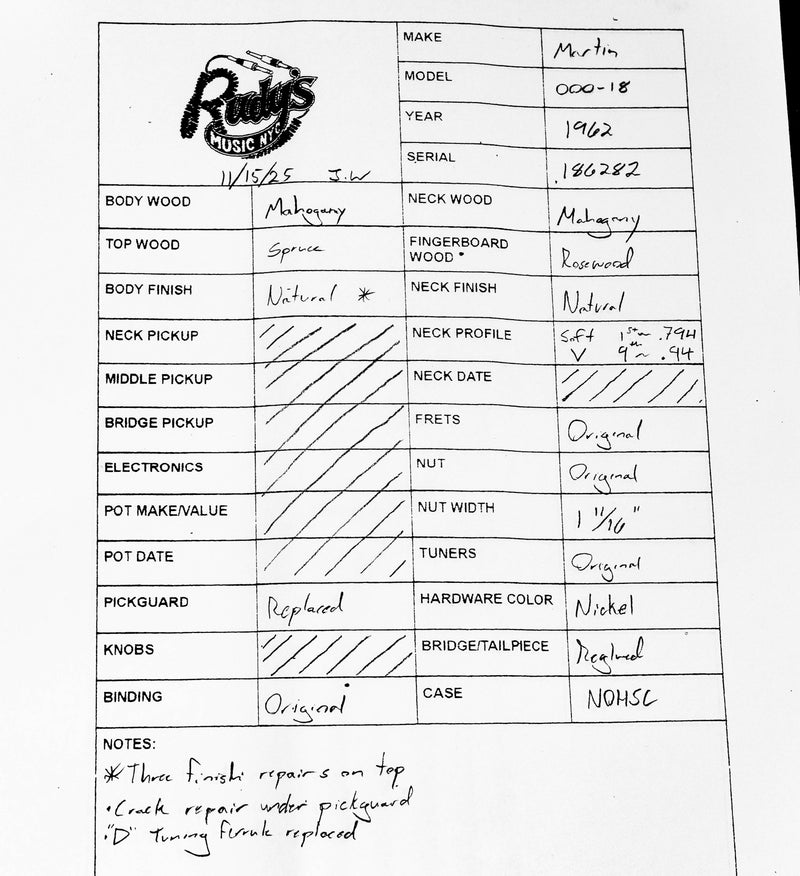 Rudy's
MUSIC NYC
11/15/25 J.W
MAKE Martin
MODEL 000-18
YEAR 1962
SERIAL 186282
BODY WOOD Mahogany NECK WOOD Mahogany
TOP WOOD Spruce FINGERBOARD WOOD Rosewood
BODY FINISH Natural * NECK FINISH Natural
NECK PICKUP NECK PROFILE Soft V 1st ~ .794
9th ~ .94
MIDDLE PICKUP NECK DATE
BRIDGE PICKUP FRETS Original
ELECTRONICS NUT Original
POT MAKE/VALUE NUT WIDTH 1 11/16"
POT DATE TUNERS Original
PICKGUARD Replaced HARDWARE COLOR Nickel
KNOBS BRIDGE/TAILPIECE Reglued
BINDING Original CASE NOHSC
NOTES:
* Three finish repairs on top
• Crack repair under pickguard
• "D" Tuning Ferrule replaced